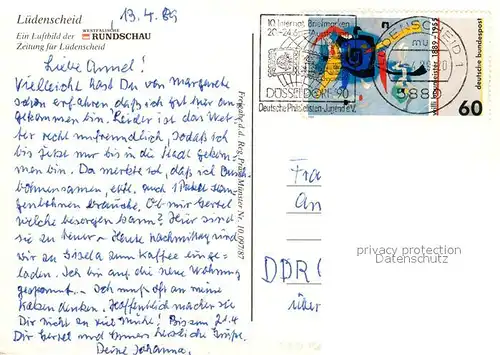 Lüdenscheid
Ein Luftbild der
WESTFÄLISCHE
RUNDSCHAU
Zeitung für Lüdenscheid
13.4.89
Liebe Annel!
Vielleicht hast Du von Margarete
schon erfahren, daß ich gut hier an-
gekommen bin. Leider ist das Wet-
ter recht unfreundlich, sodaß ich
bis jetzt nur bis in die Stadt gekom-
men bin. Da merkte ich, daß ich Busch-
bohnensamen, evtl. auch 1 Paket
brauche. Ob mir Gertel
welche besorgen kann? Hier sind
sie zu teuer. – Heute nachmittag sind
wir zu Gisela zum Kaffee einge-
laden. Ich bin auf die neue Wohnung
gespannt. – Ich muß oft an meine
Katzen denken. Hoffentlich machen sie
Dir nicht zu viel Mühe! Bis zum 21.4
Dir Gertel und herzliche Grüße.
Deine Johanna.
Freigabe d. d. Reg. Präs. Münster Nr. 10 097/87
10. Internat. Briefmarken
20.-24.6.
DÜSSELDORF 90
Deutsche Philatelisten-Jugend e.V.
588
willi baumeister 1889-1955
deutsche bundespost
60
Fra
An
DDR
über
privacy protection
Datenschutz